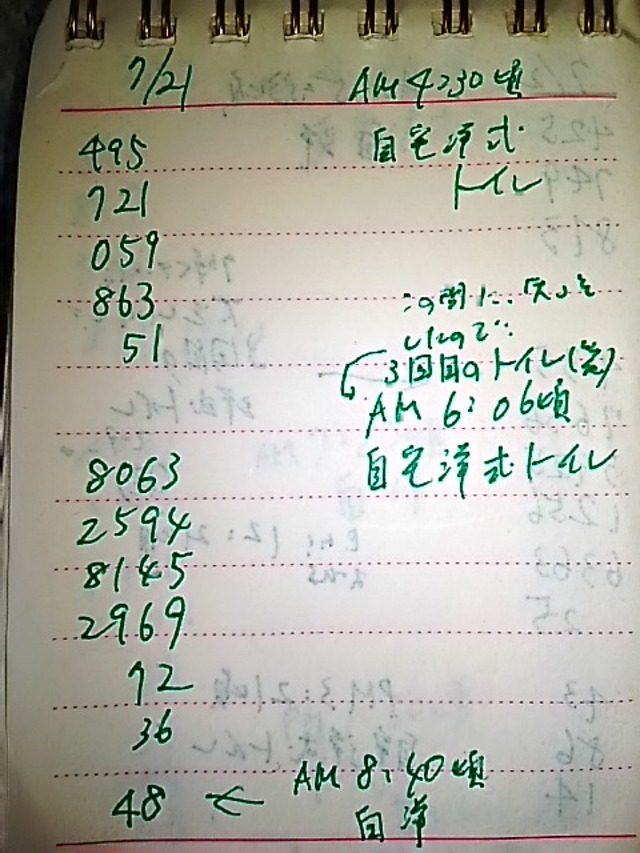 7/21 AM 4:30頃
495 自宅洋式
721 トイレ
059
863 この間に、
51 いたので…
3回目のトイレ(笑)
AM 6:06頃
8063 自宅洋式トイレ
2594
8145
2969
72
36
48 ← AM 8:40頃
自洋